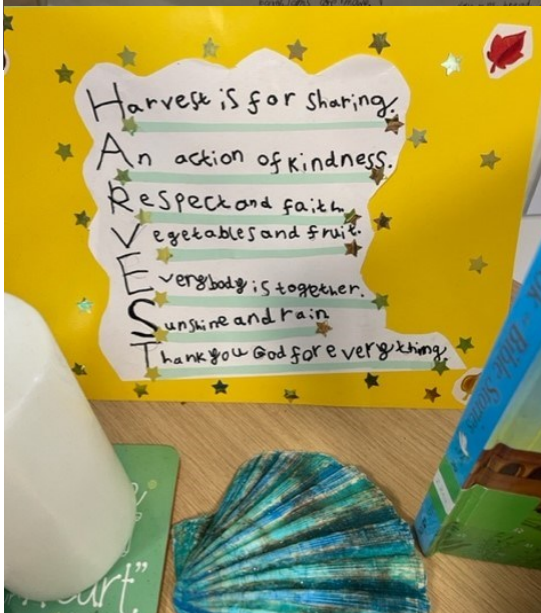 Harvest is for sharing.
An action of kindness.
Respect and faith
Vegetables and fruit.
Everybody is together.
Sunshine and rain
Thank you God for everything
Bible Stories
heart"